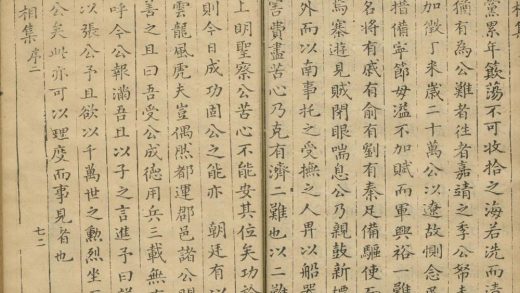 相集
黨累年簸蕩不可收拾之海若洗而清
猶有為公難者徃者嘉靖之季公帑未
加徵丁未歲二十萬公以遼故惻念
措備寧節毋溢不加賦而軍興裕一難
名將有戚有俞有劉有秦足備驅使
焉塞遊見賊閉眼喘息公乃親鼓新
外而以南事托之受撫之人畀以船器
害費盡苦心乃克有濟二難也以二難
上明聖察公苦心不能安其位矣功於
則今日成功固公之能亦 朝廷有以
雲龍風虎夫豈偶然都運郡邑諸公聞
善之且曰吾受公成德用兵三載無
呼今公報滿吾且以子之言進予曰
以張公予且欲以千萬世之勲烈坐
公矣此亦可以理度而事見者也
相集 序二 七二